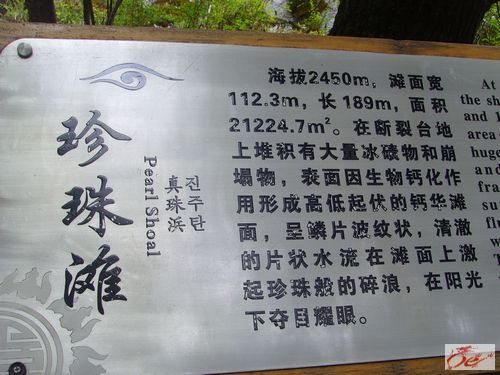 珍珠滩
Pearl Shoal
真珠浜
진주탄
海拔2450m，滩面宽
112.3m，长189m，面积
21224.7m²。在断裂台地
上堆积有大量冰碛物和崩
塌物，表面因生物钙化作
用形成高低起伏的钙华滩
面，呈鳞片波纹状，清澈
的片状水流在滩面上激
起珍珠般的碎浪，在阳光
下夺目耀眼。
At
the sh
and l
area
huge
and
fra
su
flu
w
T